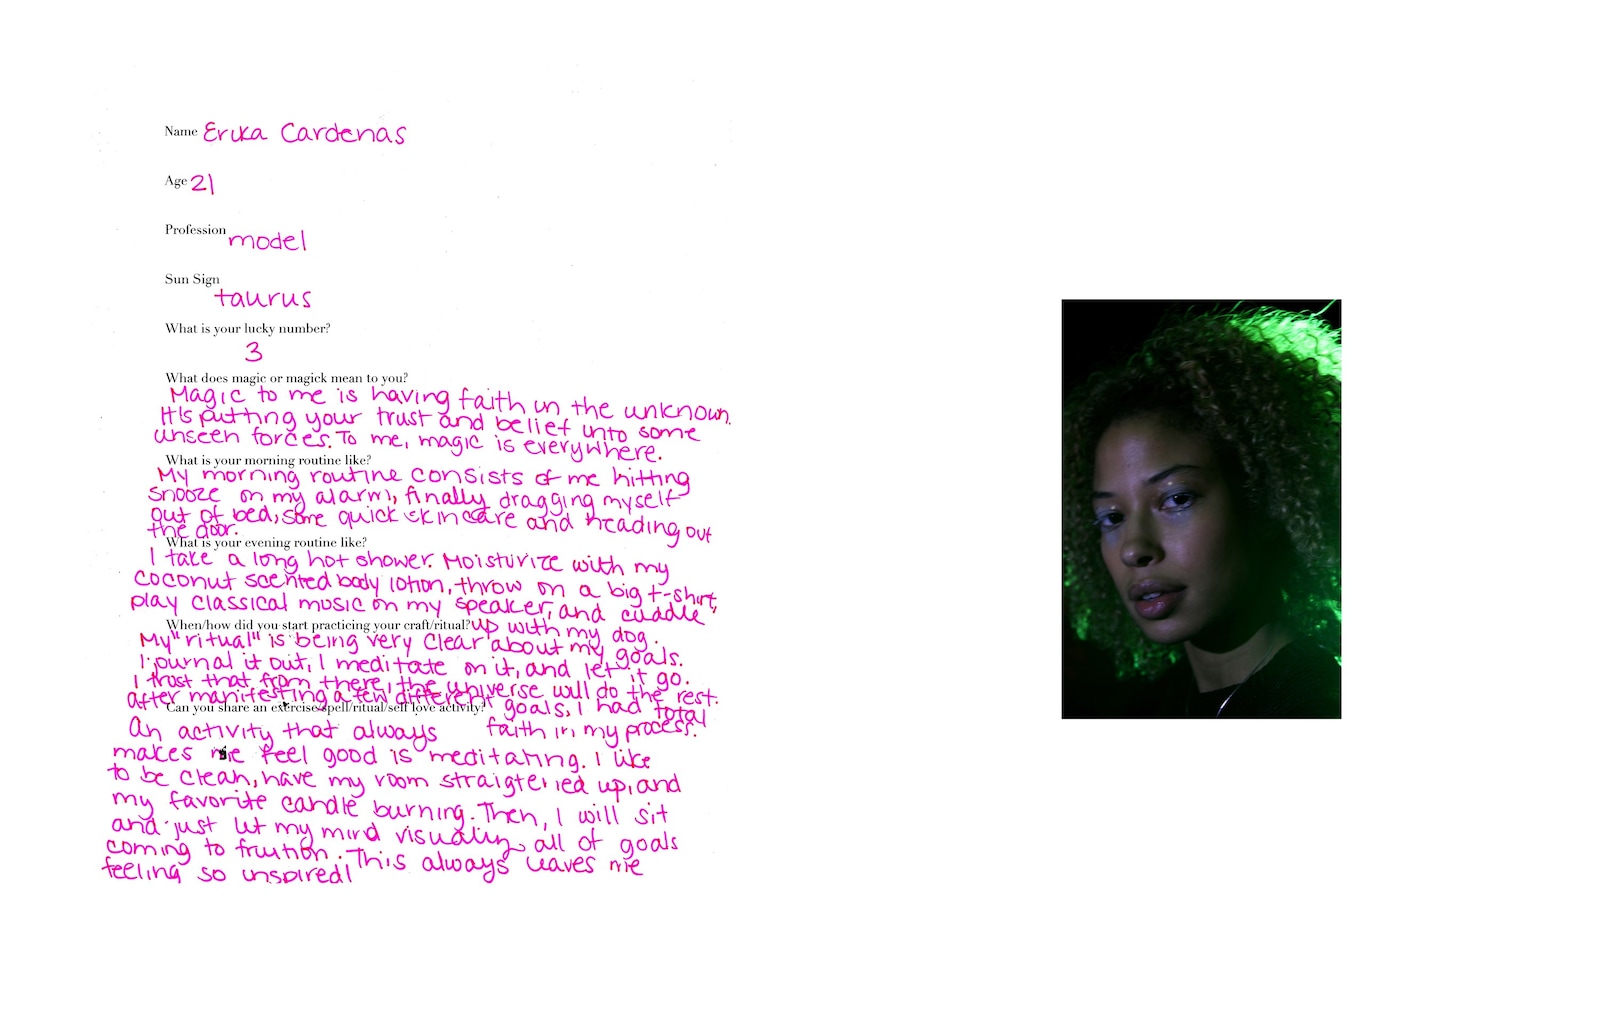 Name Erika Cardenas
Age 21
Profession model
Sun Sign
taurus
What is your lucky number?
3
What does magic or magick mean to you?
Magic to me is having faith in the unknown.
It's putting your trust and belief into some
unseen forces. To me, magic is everywhere.
What is your morning routine like?
My morning routine consists of me hitting
snooze on my alarm, finally dragging myself
out of bed, some quick skincare and heading out
the door.
What is your evening routine like?
I take a long hot shower. Moisturize with my
coconut scented body lotion, throw on a big t-shirt,
play classical music on my speaker, and cuddle
up with my dog.
When/how did you start practicing your craft/ritual?
My "ritual" is being very clear about my goals.
I journal it out, I meditate on it, and let it go.
I trust that from there, the universe will do the rest.
After manifesting a few different goals, I had total
faith in my process.
Can you share an exercise/spell/ritual/self love activity?
An activity that always
makes me feel good is meditating. I like
to be clean, have my room straigtened up, and
my favorite candle burning. Then, I will sit
and just let my mind visualize all of goals
coming to fruition. This always leaves me
feeling so inspired!